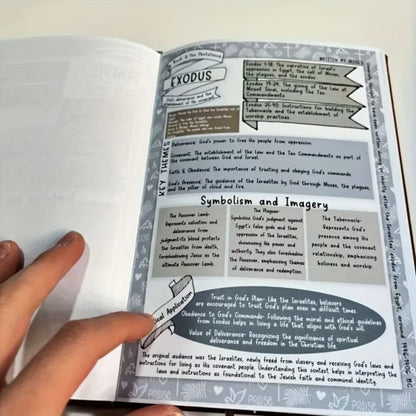 Book 2: The Pentateuch
WRITTEN BY: MOSES
EXODUS
God's deliverance and the
establishment of His
Exodus 1-18: The narrative of Israel's
oppression in Egypt, the call of Moses,
the plagues, and the exodus.
Exodus 19-24: The giving of the Law at
Mount Sinai, including the Ten
Commandments
Exodus 25-40: Instructions for building
the Tabernacle and the establishment of
worship practices.
KEY THEMES
Deliverance: God's power to free His people from oppression.
Covenant: The establishment of the Law and the Ten Commandments as part of
the covenant between God and Israel.
Faith & Obedience: The importance of trusting and obeying God's commands.
God's Presence: The guidance of the Israelites by God through Moses, the plagues,
and the pillar of cloud and fire.
Symbolism and Imagery
The Passover Lamb-
Represents salvation and
deliverance from
judgment-its blood protects
the Israelites from death,
foreshadowing Jesus as the
ultimate Passover Lamb.
The Plagues-
Symbolize God's judgment against
Egypt's false gods and their
oppression of the Israelites,
showcasing His power and
authority. They also foreshadow
the Passover, emphasizing themes
of deliverance and redemption.
The Tabernacle-
Represents God's
presence among His
people and the covenant
relationship, emphasizing
holiness and worship.
Application
Trust in God's Plan- Like the Israelites, believers
are encouraged to trust God's plan even in difficult times.
Obedience to God's Commands- Following the moral and ethical guidelines
from Exodus helps in living a life that aligns with God's will.
Value of Deliverance- Recognizing the significance of spiritual
deliverance and freedom in the Christian life.
The original audience was the Israelites, newly freed from slavery and receiving God's laws and
instructions for living as His covenant people. Understanding this context helps in interpreting the
laws and instructions as foundational to the Jewish faith and communal identity.
PRAISE
PRAISE